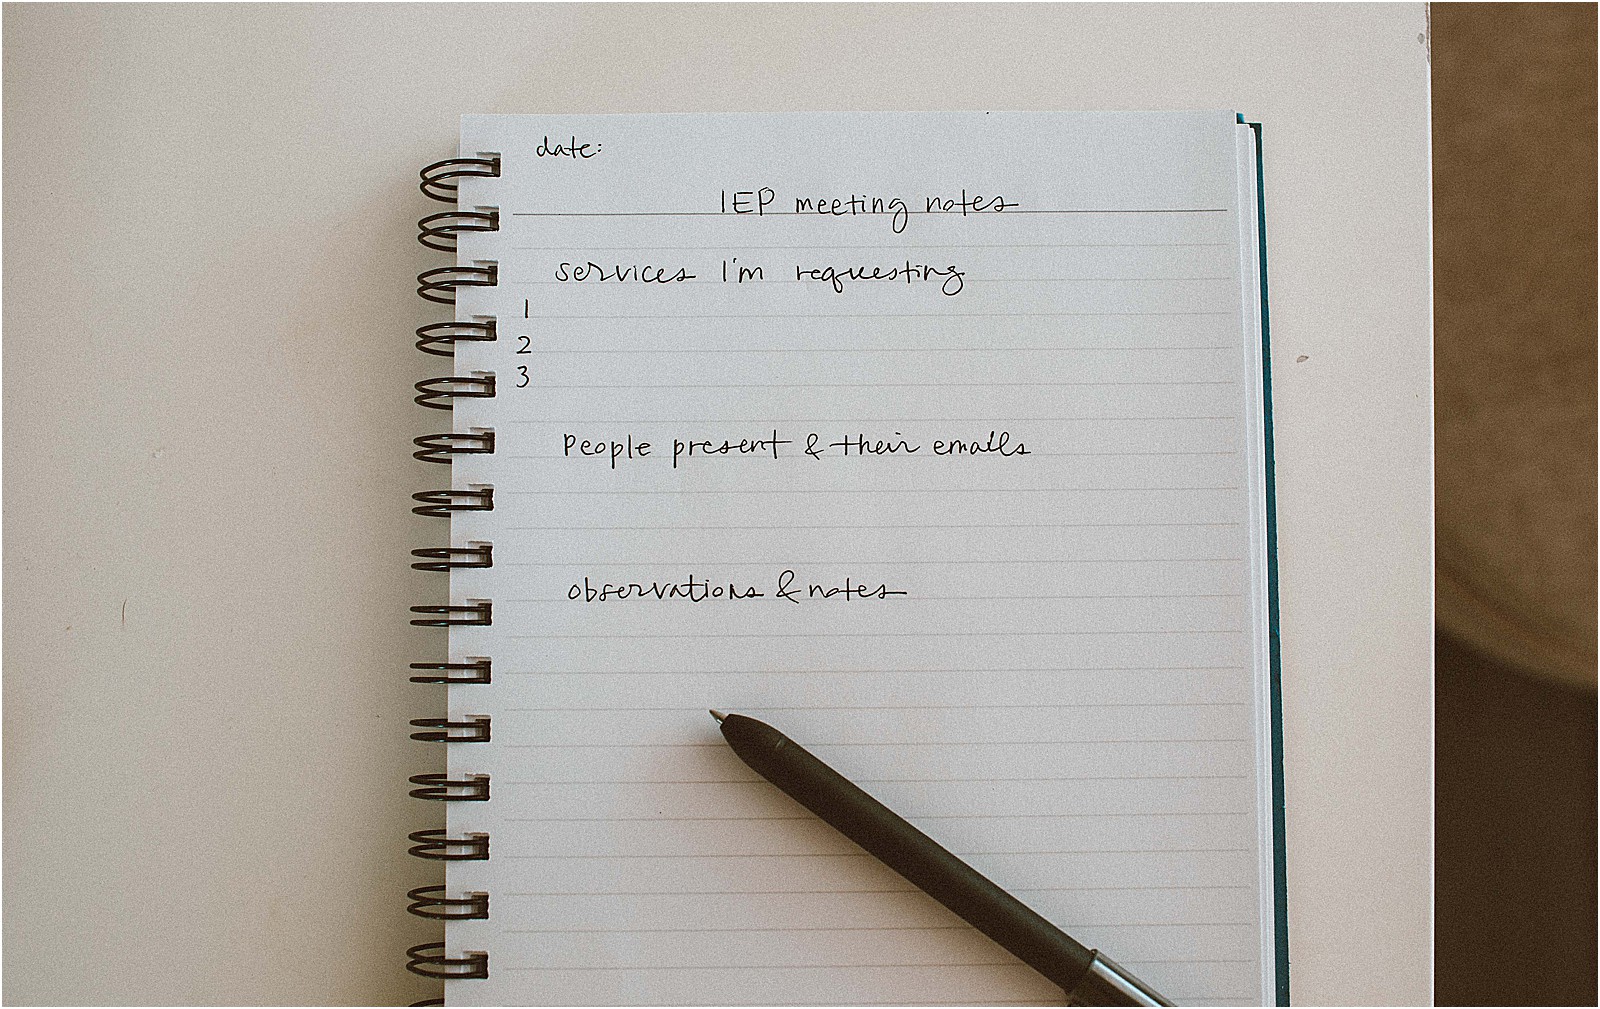 date:
IEP meeting notes
services I'm requesting
1
2
3
People present & their emails
observations & notes